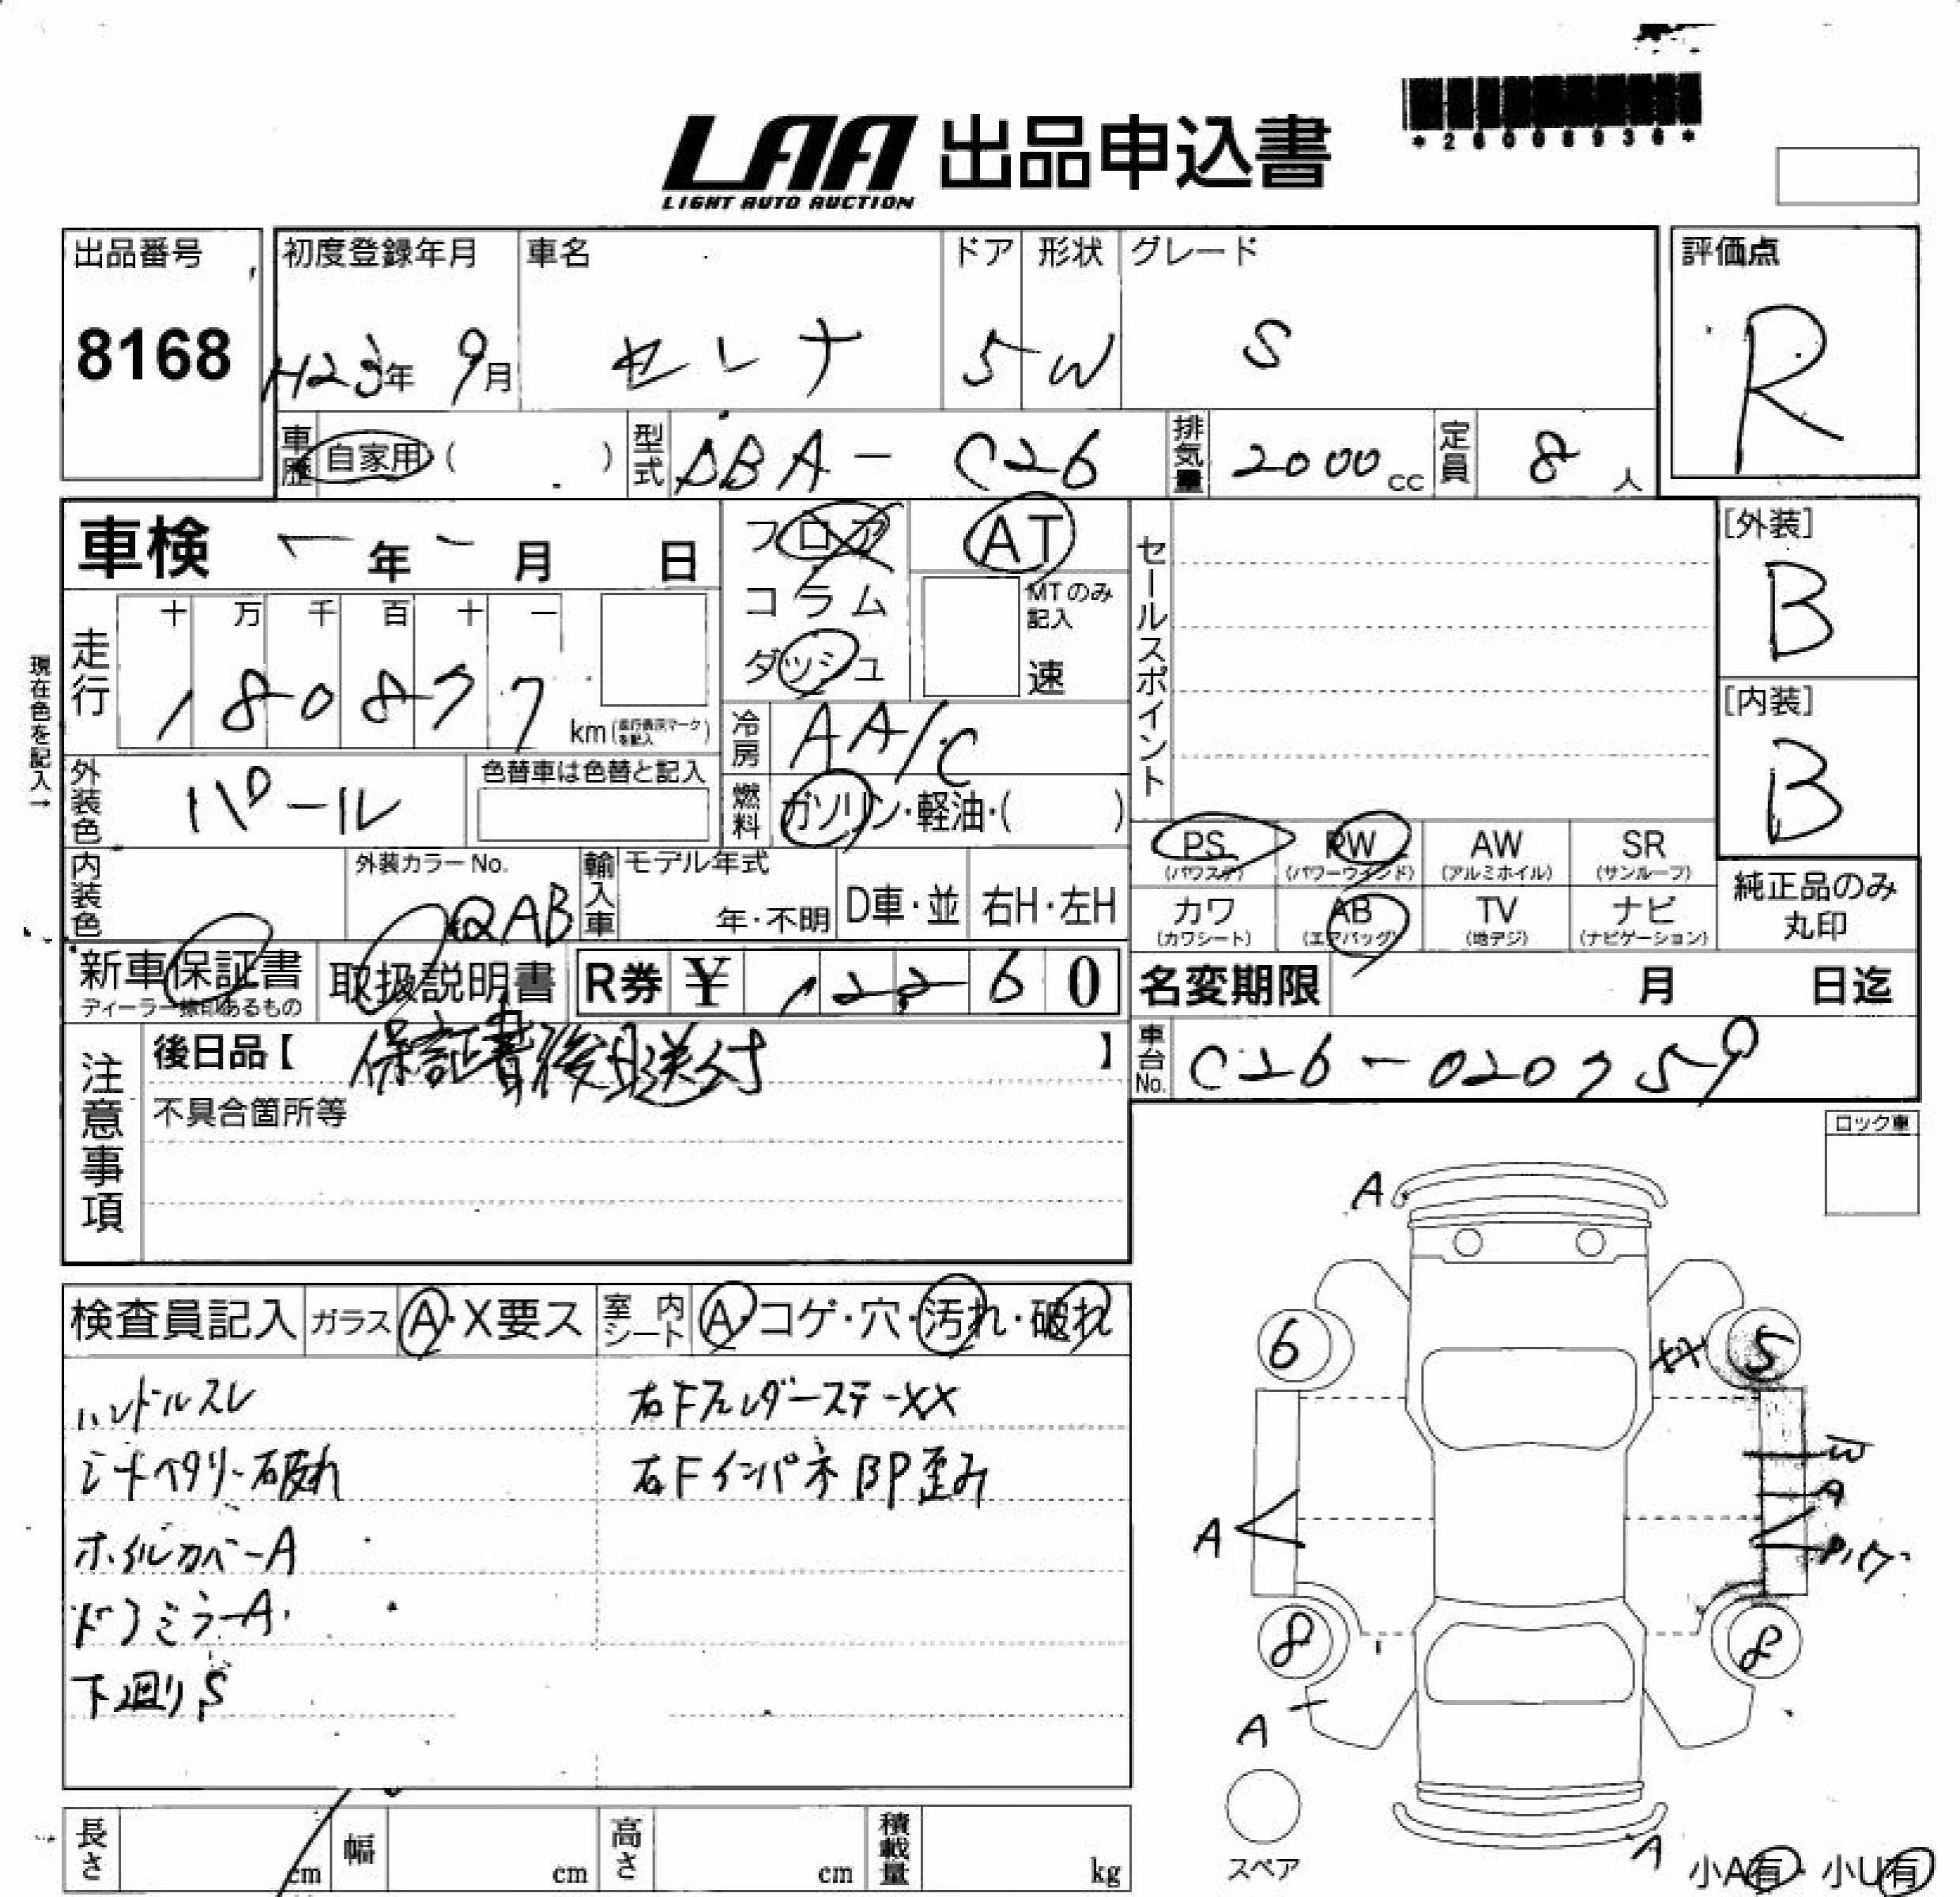 *26008936*
LAA 出品申込書
LIGHT AUTO AUCTION
出品番号
8168
初度登録年月
H23年 9月
車名
セレナ
ドア
5
形状
W
グレード
S
評価点
R
車歴
自家用( )
型式
DBA- C26
排気量
2000 cc
定員
8 人
車検 年 月 日
フロア
コラム
ダッシュ
AT
MTのみ記入
速
セールスポイント
[外装]
B
[内装]
B
現在色を記入→
走行
十 万 千 百 十 一
1 8 0 8 7 7
km(走行表示マークを記入)
冷房
AA/C
燃料
ガソリン・軽油・( )
外装色
パール
色替車は色替と記入
内装色
外装カラーNo.
QAB
輸入車
モデル年式
年・不明
D車・並
右H・左H
PS
(パワステ)
PW
(パワーウインド)
AW
(アルミホイル)
SR
(サンルーフ)
カワ
(カワシート)
AB
(エアバッグ)
TV
(地デジ)
ナビ
(ナビゲーション)
純正品のみ
丸印
新車保証書
ディーラー捺印あるもの
取扱説明書
R券 ¥ 1 2 2 6 0
名変期限 月 日迄
車台No.
C26-020759
注意事項
後日品【 保証書後日送付 】
不具合箇所等
ロック車
検査員記入
ガラス
A・X要ス
室内シート
A・コゲ・穴・汚れ・破れ
ハンドルスレ
シートヘタリ・破れ
ホイルカバーA
ドアミラーA
下廻りS
右Fフェンダーステー XX
右FインパネBP歪み
A
6
XX
5
W
A
A
8
8
A
スペア
A
小A有・小U有
長さ cm
幅 cm
高さ cm
積載量 kg